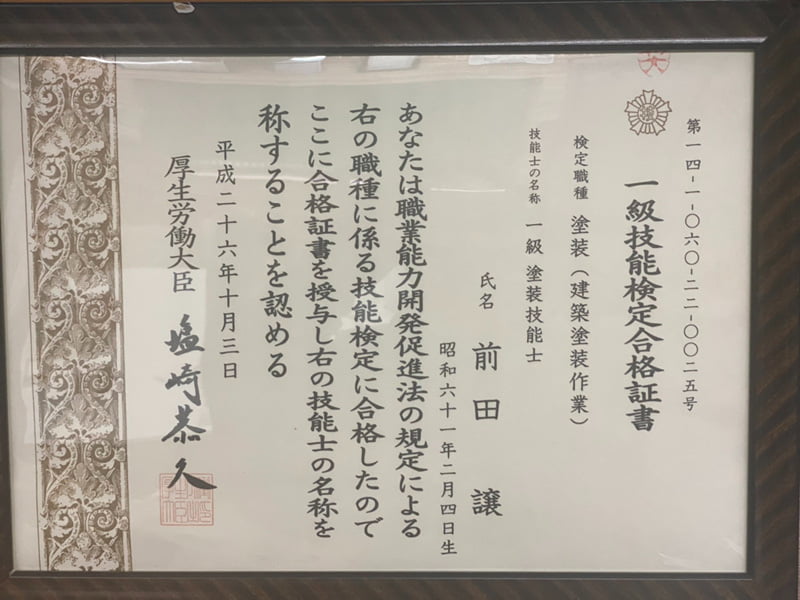 第一四-一-〇六〇-二二-〇〇二五号
一級技能検定合格証書
検定職種 塗装（建築塗装作業）
技能士の名称 一級 塗装技能士
氏名 前田 譲
昭和六十一年二月四日生
あなたは職業能力開発促進法の規定による
右の職種に係る技能検定に合格したので
ここに合格証書を授与し右の技能士の名称を
称することを認める
平成二十六年十月三日
厚生労働大臣 塩崎恭久